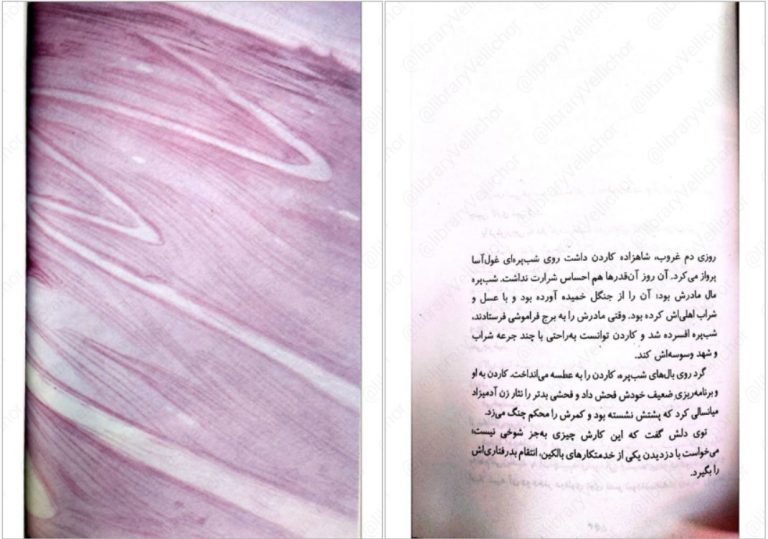 روزی دم غروب، شاهزاده کاردن داشت روی شب‌پره‌ای غول‌آسا
پرواز می‌کرد. آن روز آن‌قدرها هم احساس شرارت نداشت. شب‌پره
مال مادرش بود؛ آن را از جنگل خمیده آورده بود و با عسل و
شراب اهلی‌اش کرده بود. وقتی مادرش را به برج فراموشی فرستادند،
شب‌پره افسرده شد و کاردن توانست به‌راحتی با چند جرعه شراب
و شهد وسوسه‌اش کند.
گرد روی بال‌های شب‌پره، کاردن را به عطسه می‌انداخت. کاردن به او
و برنامه‌ریزی ضعیف خودش فحش داد و فحشی بدتر را نثار زن آدمیزاد
میانسالی کرد که پشتش نشسته بود و کمرش را محکم چنگ می‌زد.
توی دلش گفت که این کارش چیزی به‌جز شوخی نیست؛
می‌خواست با دزدیدن یکی از خدمتکارهای بالکین، انتقام بدرفتاری‌اش
را بگیرد.
@libraryVellichor